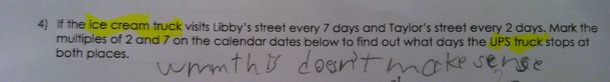 4) If the ice cream truck visits Libby's street every 7 days and Taylor's street every 2 days. Mark the
multiples of 2 and 7 on the calendar dates below to find out what days the UPS truck stops at
both places.
ummthis doesn't make sense